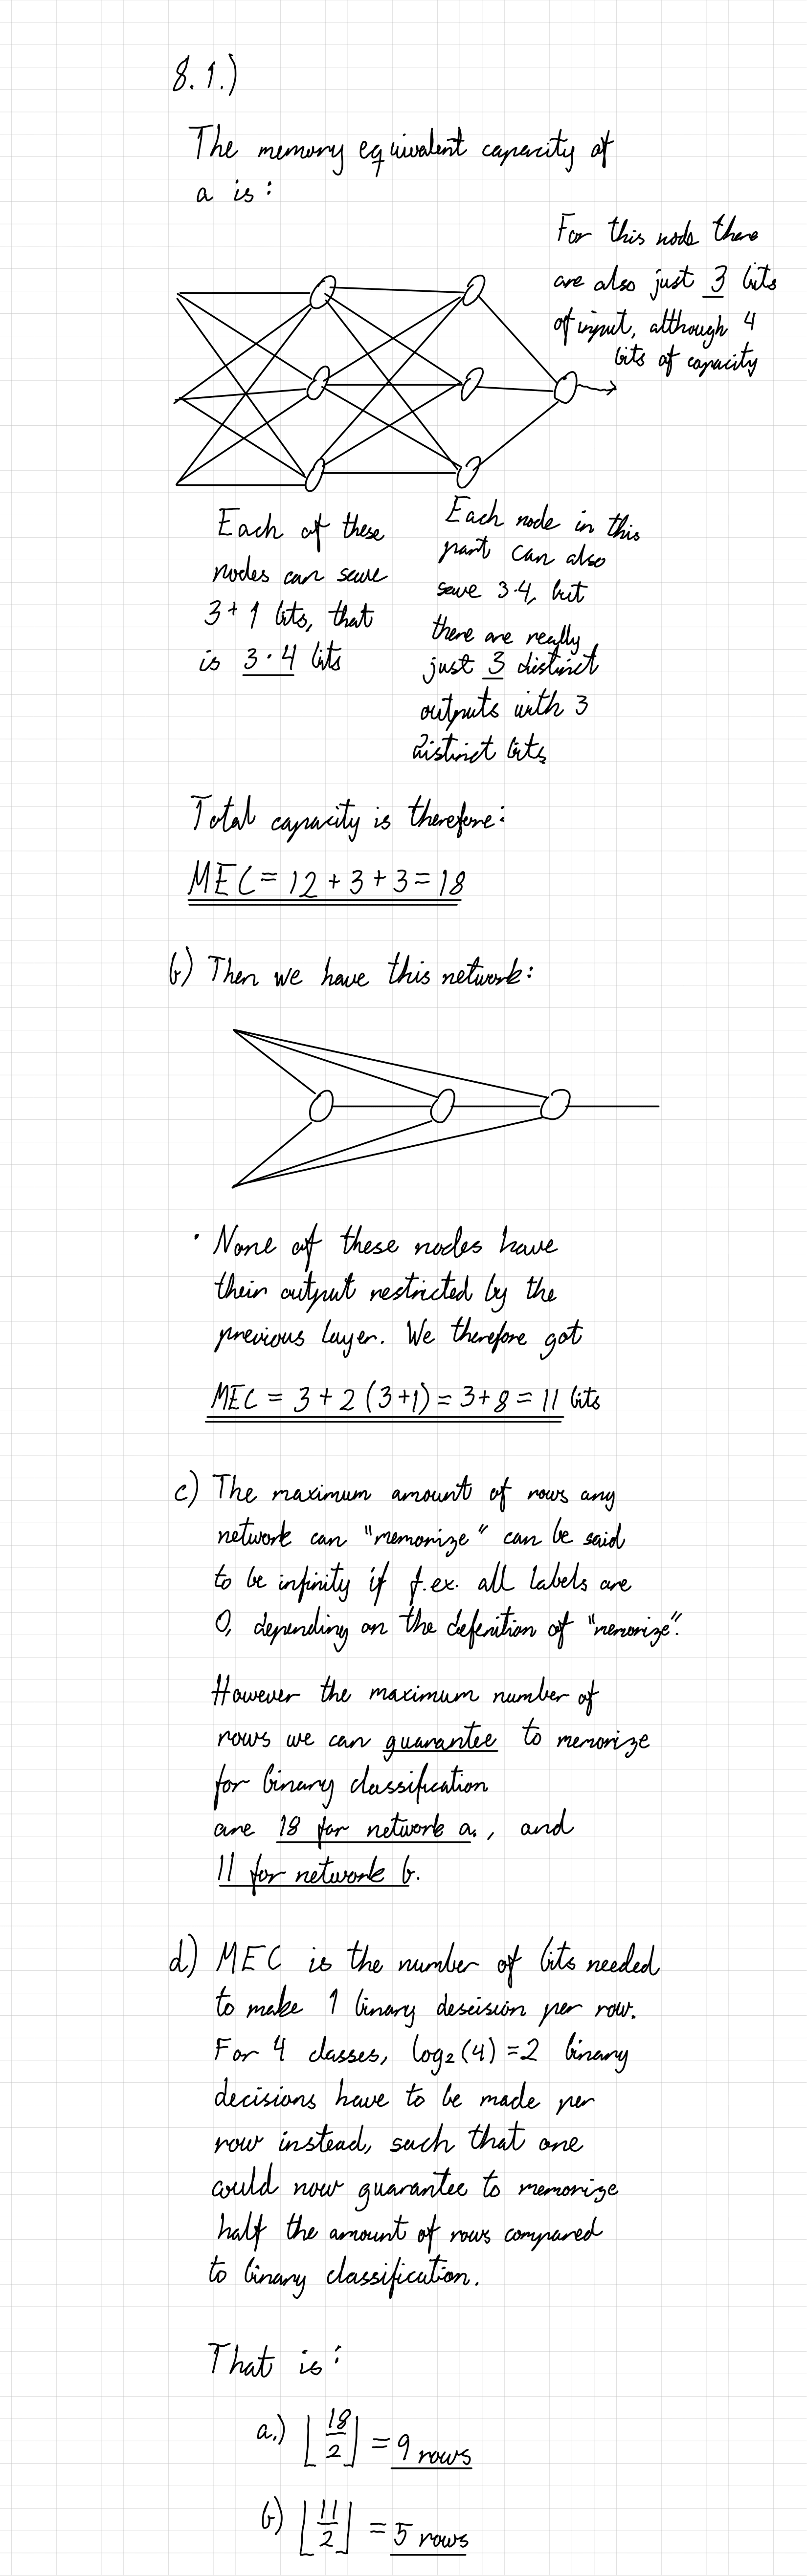 8.1.)
The memory equivalent capacity of
a is:
For this node there
are also just 3 bits
of input, although 4
bits of capacity
Each of these
nodes can save
3+1 bits, that
is 3·4 bits
Each node in this
part can also
save 3·4, but
there are really
just 3 distinct
outputs with 3
distinct bits
Total capacity is therefore:
MEC = 12 + 3 + 3 = 18
b) Then we have this network:
· None of these nodes have
their output restricted by the
previous layer. We therefore got
MEC = 3 + 2 (3+1) = 3+8 = 11 bits
c) The maximum amount of rows any
network can "memorize" can be said
to be infinity if f.ex. all labels are
0, depending on the defenition of "memorize".
However the maximum number of
rows we can guarantee to memorize
for binary classification
are 18 for network a., and
11 for network b.
d) MEC is the number of bits needed
to make 1 binary descision per row.
For 4 classes, log₂(4) = 2 binary
decisions have to be made per
row instead, such that one
could now guarantee to memorize
half the amount of rows compared
to binary classification.
That is:
a.) ⌊18/2⌋ = 9 rows
b) ⌊11/2⌋ = 5 rows